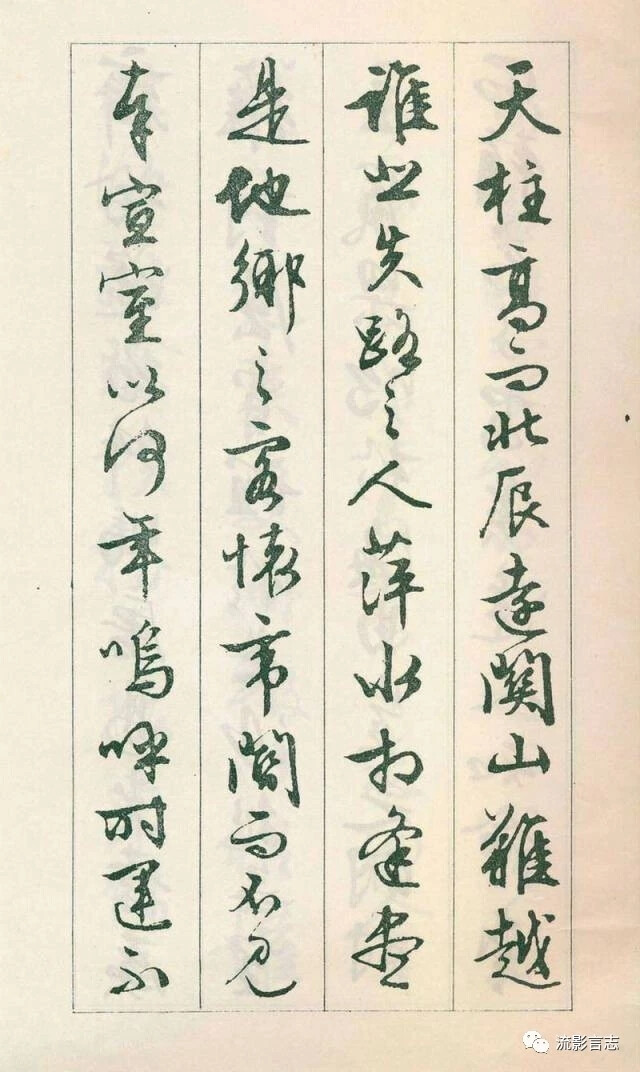 天柱高而北辰遠關山難越
誰悲失路之人萍水相逢盡
是他鄉之客懷帝閽而不見
奉宣室以何年嗚呼時運不
流影言志